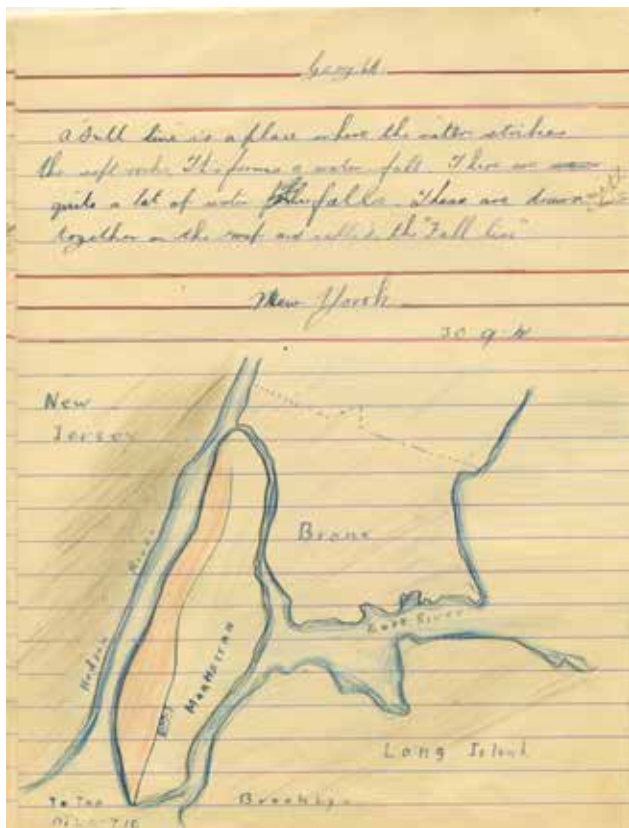 A Fall line is a place where the water strikes
the soft rocks. It formes a water fall. There are
quite a lot of water falls. These are drawn
together on the map and called the "Fall line"
New Yorok
30 9
New
Jersey
Bronx
River
Hudson
Manhattan
East River
Long Island
Brooklyn
To The